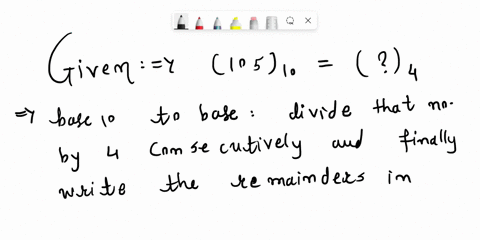 Given :⇒ (105)₁₀ = (?)₄
⇒ base 10 to base : divide that no.
by 4 consecutively and finally
write the remainders in